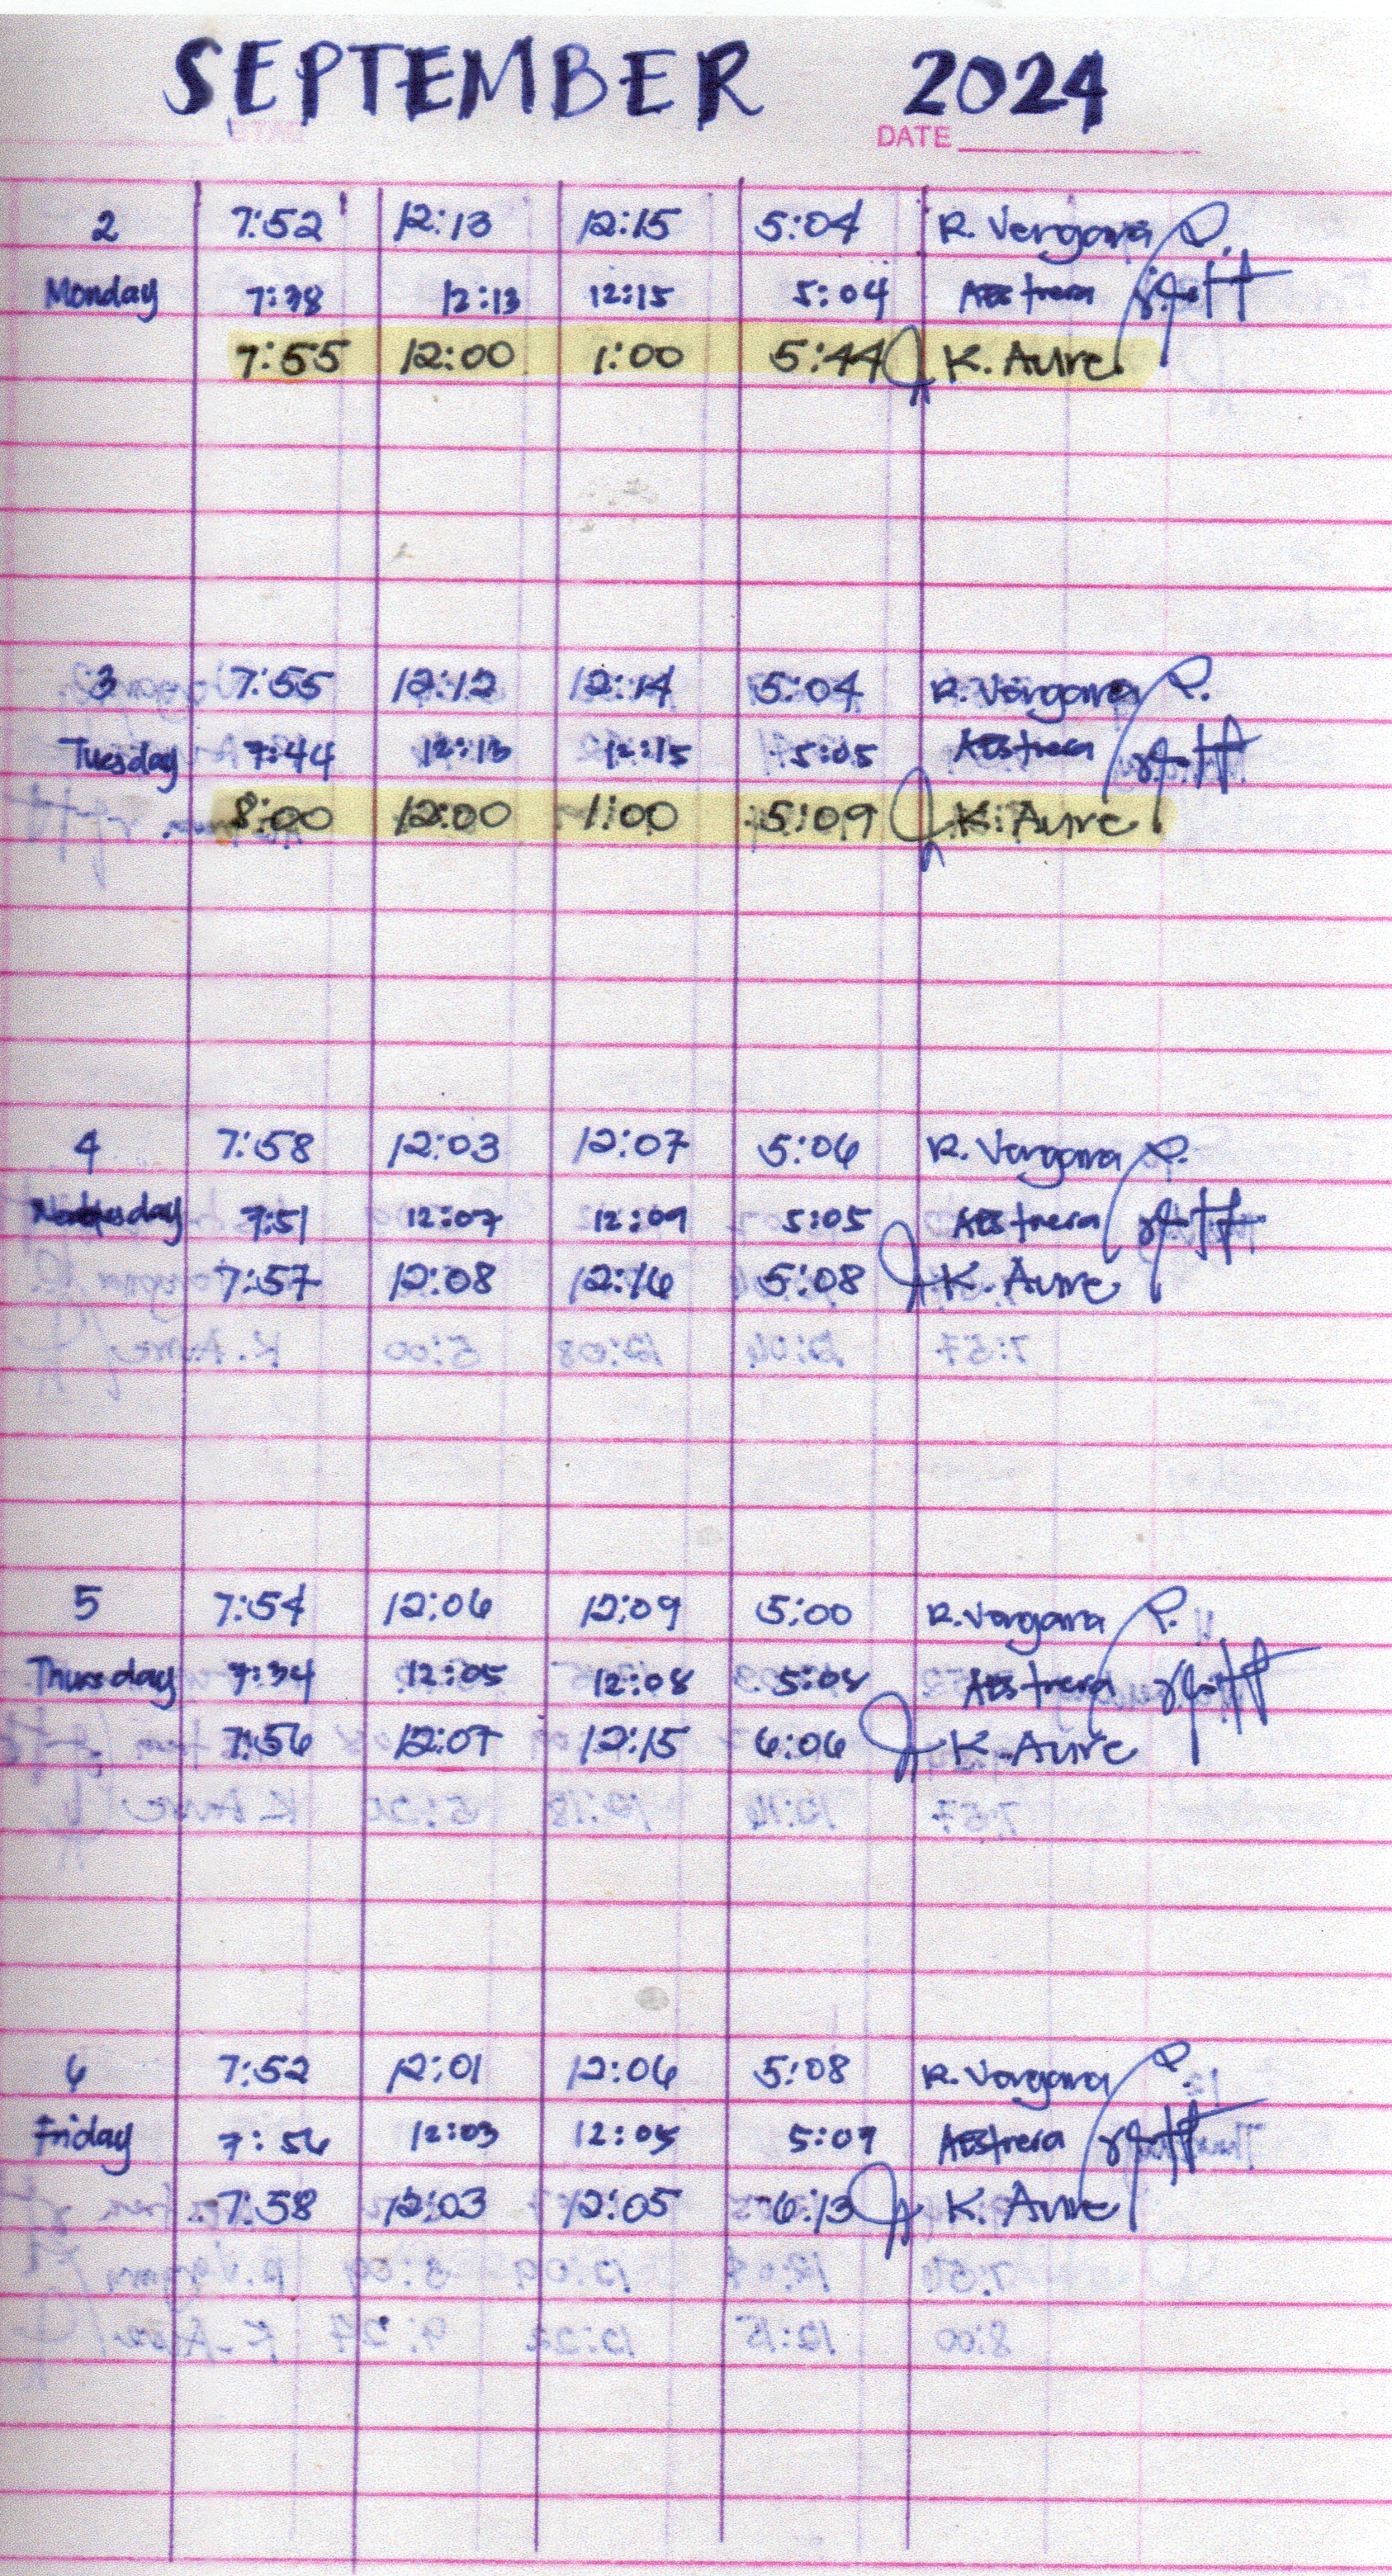 SEPTEMBER 2024
DATE
2 7:52 12:13 12:15 5:04 R. Vergara
Monday 7:38 12:13 12:15 5:04 AEstrera
7:55 12:00 1:00 5:44 K. Aure
3 7:55 12:12 12:14 5:04 R. Vergara
Tuesday 7:44 12:13 12:15 5:05 AEstrera
8:00 12:00 1:00 5:09 K. Aure
4 7:58 12:03 12:07 5:06 R. Vergara
7:51 12:07 12:09 5:05 AEstrera
7:57 12:08 12:16 5:08 K. Aure
5 7:54 12:06 12:09 5:00 R. Vergara
Thursday 7:34 12:05 12:08 5:08 AEstrera
7:56 12:07 12:15 6:06 K. Aure
6 7:52 12:01 12:06 5:08 R. Vergara
Friday 7:56 12:03 12:05 5:09 AEstrera
7:58 12:03 12:05 6:13 K. Aure